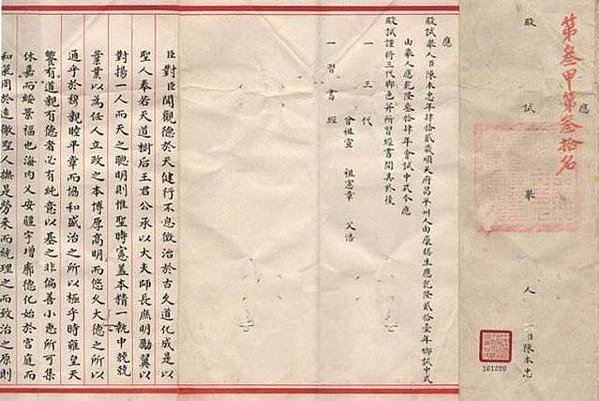 第叁甲第叁拾名
應
殿試舉人臣陳本忠
161220
應
殿試舉人臣陳本忠年肆拾貳歲順天府昌平州人由廩膳生應乾隆貳拾壹年鄉試中式
由舉人應乾隆叁拾肆年會試中式今應
殿試謹將三代脚色并所習經書開具於後
一三代
曾祖宣 祖憲章 父浩
一習書經
臣對臣聞觀德於天健行不息徵治於古久道化成是以
聖人奉若天道樹后王君公承以大夫師長庶明勵翼以
對揚一人而天之聰明則惟聖時憲蓋本精一執中兢兢
業業以為任人立政之本博厚高明而悠久大德之所以
通乎於穆親睦平章而協和盛治之所以極乎時雍皇天
饗有道親有德者必有純意以基之非偏善小惠所可集
休嘉而綏景福也海內乂安疆宇增廓德化始於宮庭而
和氣周於遐徼聖人撫是勞來而統理之而致治之原則